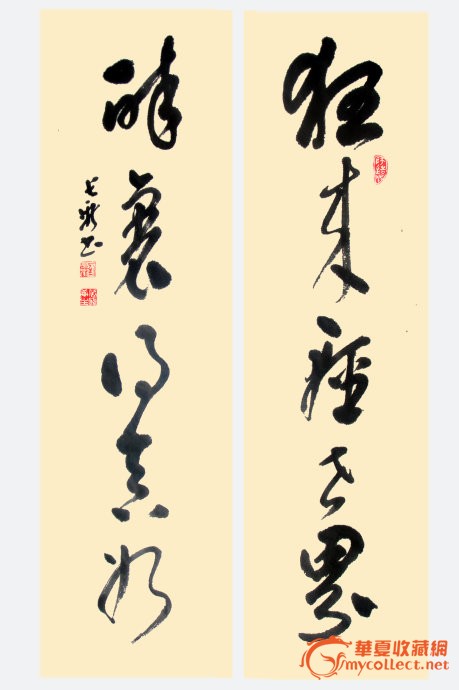 狂来轻世界
醉里得真如
華夏收藏網
mycollect.net